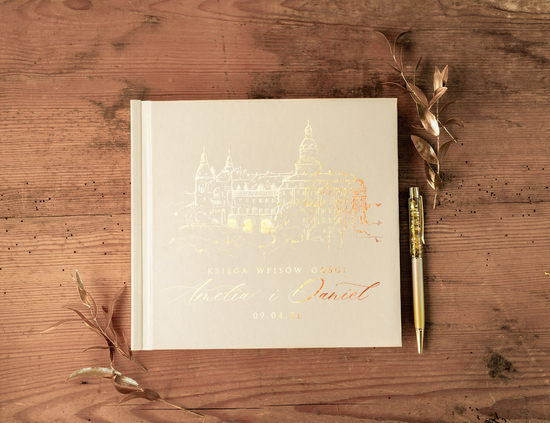 KSIĘGA WPISÓW GOŚCI
Amelia i Daniel